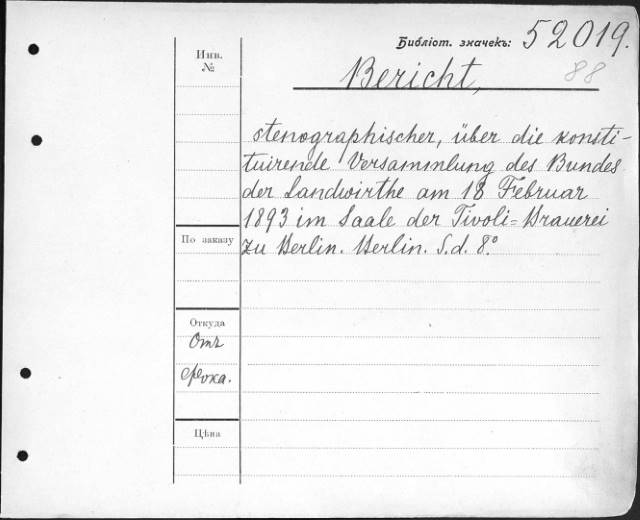 Библіот. значекъ: 52019.
88
Инв.
№
Bericht,
stenographischer, über die konsti-
tuirende Versammlung des Bundes
der Landwirthe am 18 Februar
1893 im Saale der Tivoli=Brauerei
zu Berlin. Berlin. S.d. 8.°
По заказу
Откуда
Отъ
Цѣна